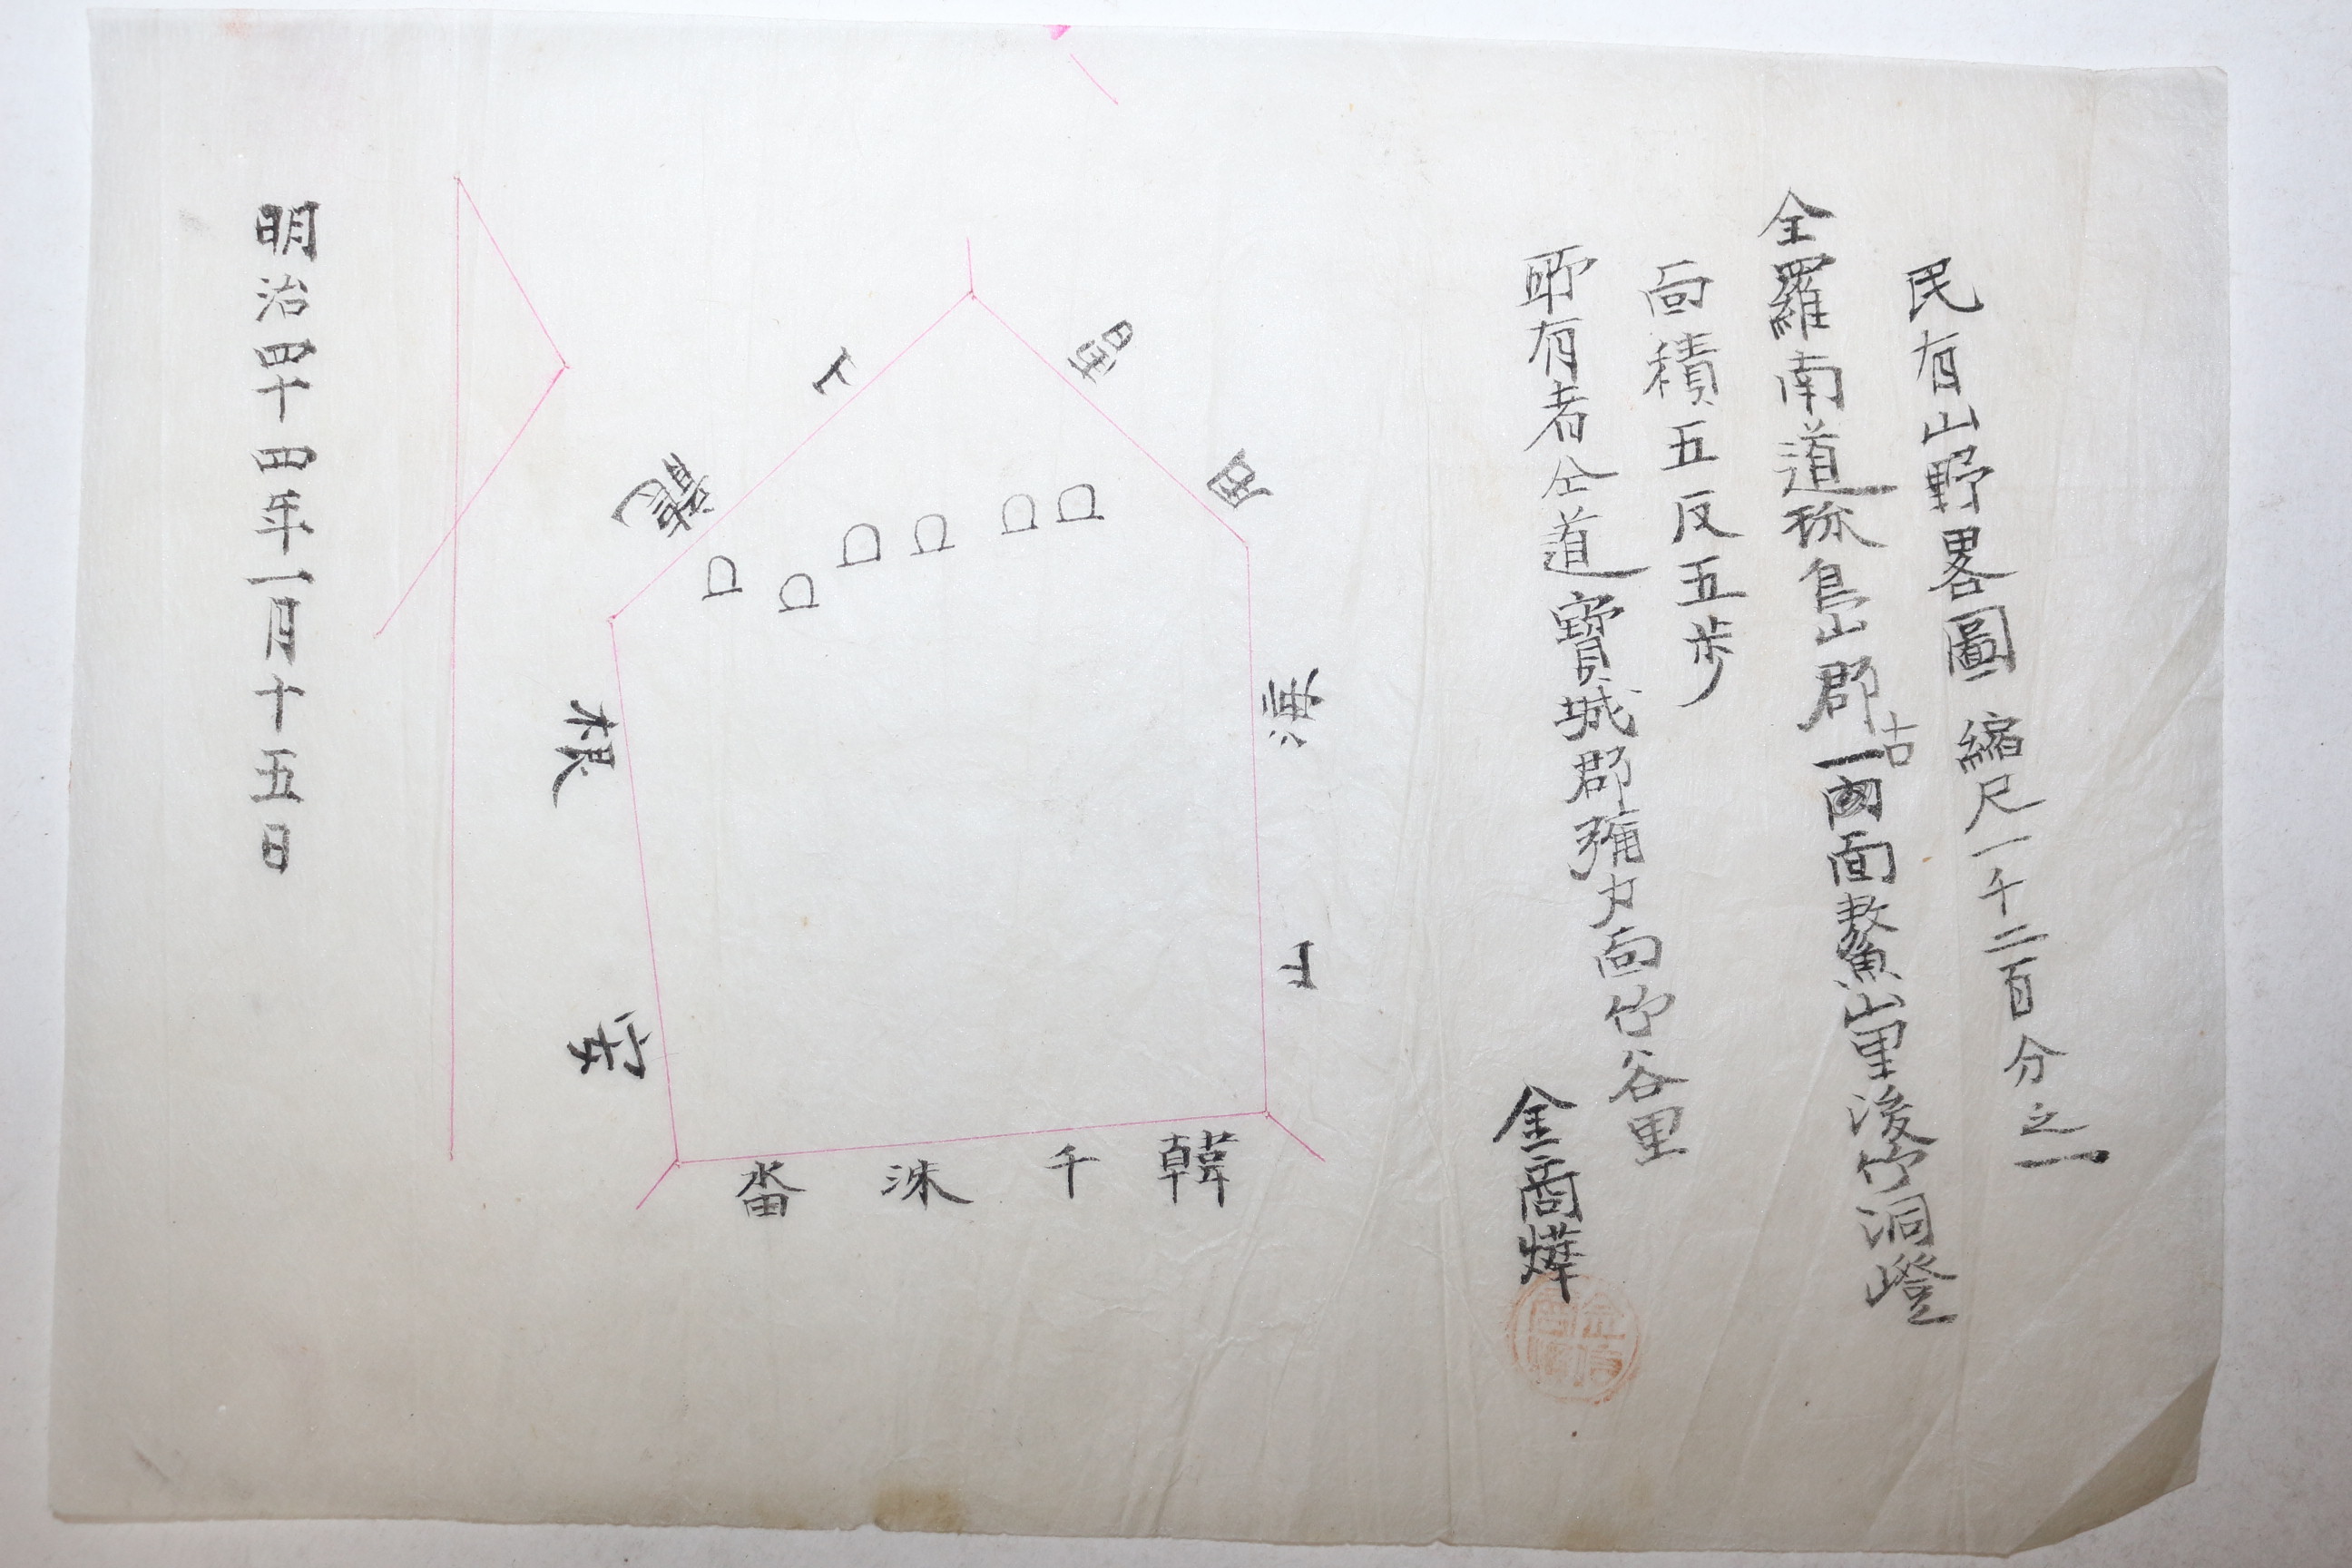 民有山野畧圖 縮尺一千二百分之一
全羅南道珎島郡古一面鰲山里後竹洞嶝
面積五反五步
所有者仝道寶城郡彌力面竹谷里
金商燁
田
海
韓千洙畓
安根龍
明治四十四年一月十五日